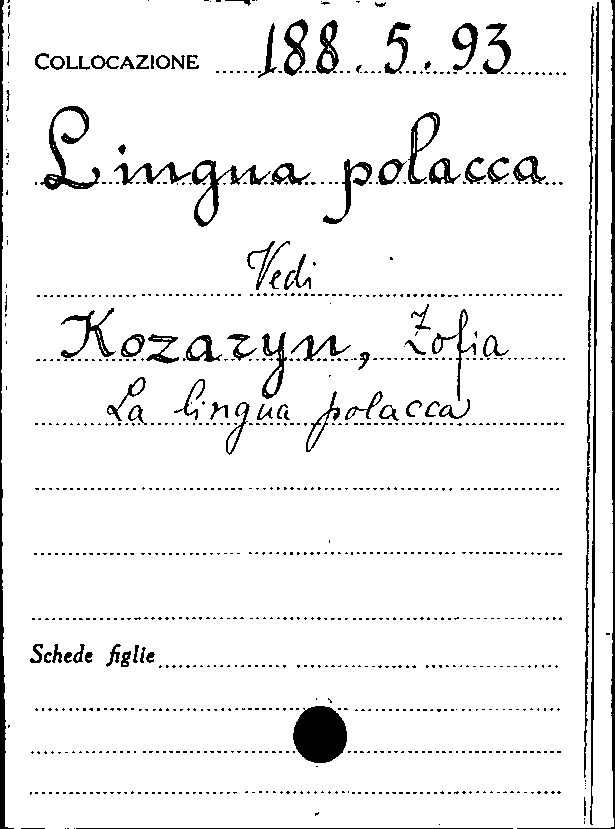 COLLOCAZIONE 188.5.93
Lingua polacca
Vedi
Kozaryn, Zofia
La lingua polacca
Schede figlie